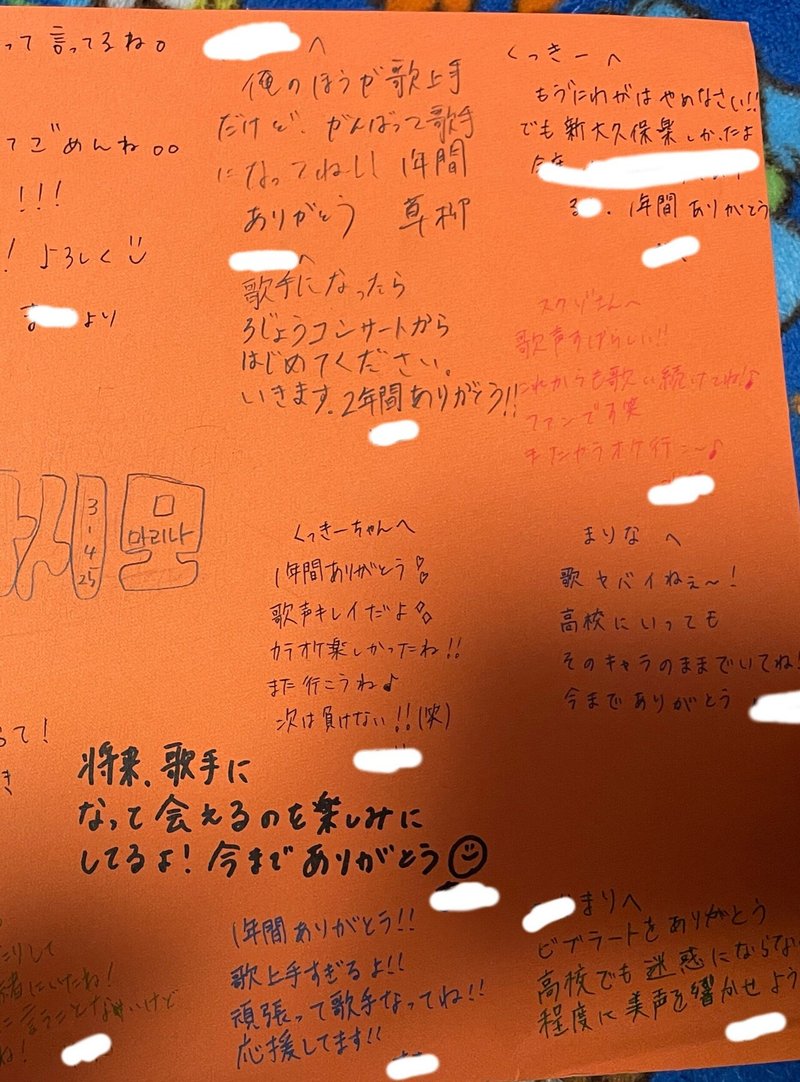 って言ってるね。
てごめんね。。
!!!
! よろしく
より
へ
俺のほうが歌上手
だけど、がんばって歌手
になってね!! 1年間
ありがとう 草柳
くっきーへ
もうにわがはやめなさい!!
でも新大久保楽しかったよ
る
。1年間ありがとう
へ
歌手になったら
ろじょうコンサートから
はじめてください。
いきます。2年間ありがとう!!
さんへ
歌声すばらしい!!
これからも歌い続けてね!♪
ファンです笑
またカラオケ行こ〜♪
3
4
25
마리나
くっきーちゃんへ
1年間ありがとう!!
歌声キレイだよ
カラオケ楽しかったね!!
また行こうね♪
次は負けない!!(笑)
まりなへ
歌ヤバイねぇ〜!
高校にいっても
そのキャラのままでいてね!
今までありがとう
って!
き
将来、歌手に
なって会えるのを楽しみに
してるよ! 今までありがとう
たりして
緒にいたね!
に言うことないけど
ね!
1年間ありがとう!!
歌上手すぎるよ!!
頑張って歌手なってね!!
応援してます!!
まりへ
ビブラートをありがとう
高校でも迷惑にならない
程度に美声を響かせよう